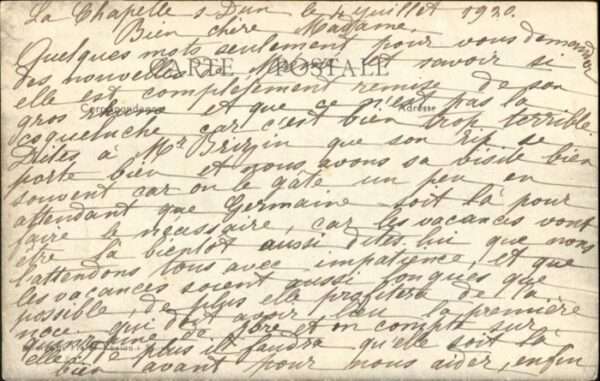 La Chapelle s Dun le 4 Juillet 1920.
Bien chère Madame,
Quelques mots seulement pour vous demander
des nouvelles de et savoir si
CARTE POSTALE
elle est complètement remise de son
Correspondance Adresse
gros rhume et que ce n'est pas la
coqueluche car c'est bien trop terrible.
Dites à Mr que son se
porte bien et nous avons sa visite bien
souvent car on le gâte un peu en
attendant que Germaine soit là pour
faire le nécessaire, car les vacances vont
être là bientôt aussi dites-lui que nous
l'attendons tous avec impatience, et que
les vacances soient aussi longues que
possible, de plus elle profitera de la
noce qui doit avoir lieu la première
quinzaine de et on compte sur
elle, de plus il faudra qu'elle soit là
bien avant pour nous aider, enfin